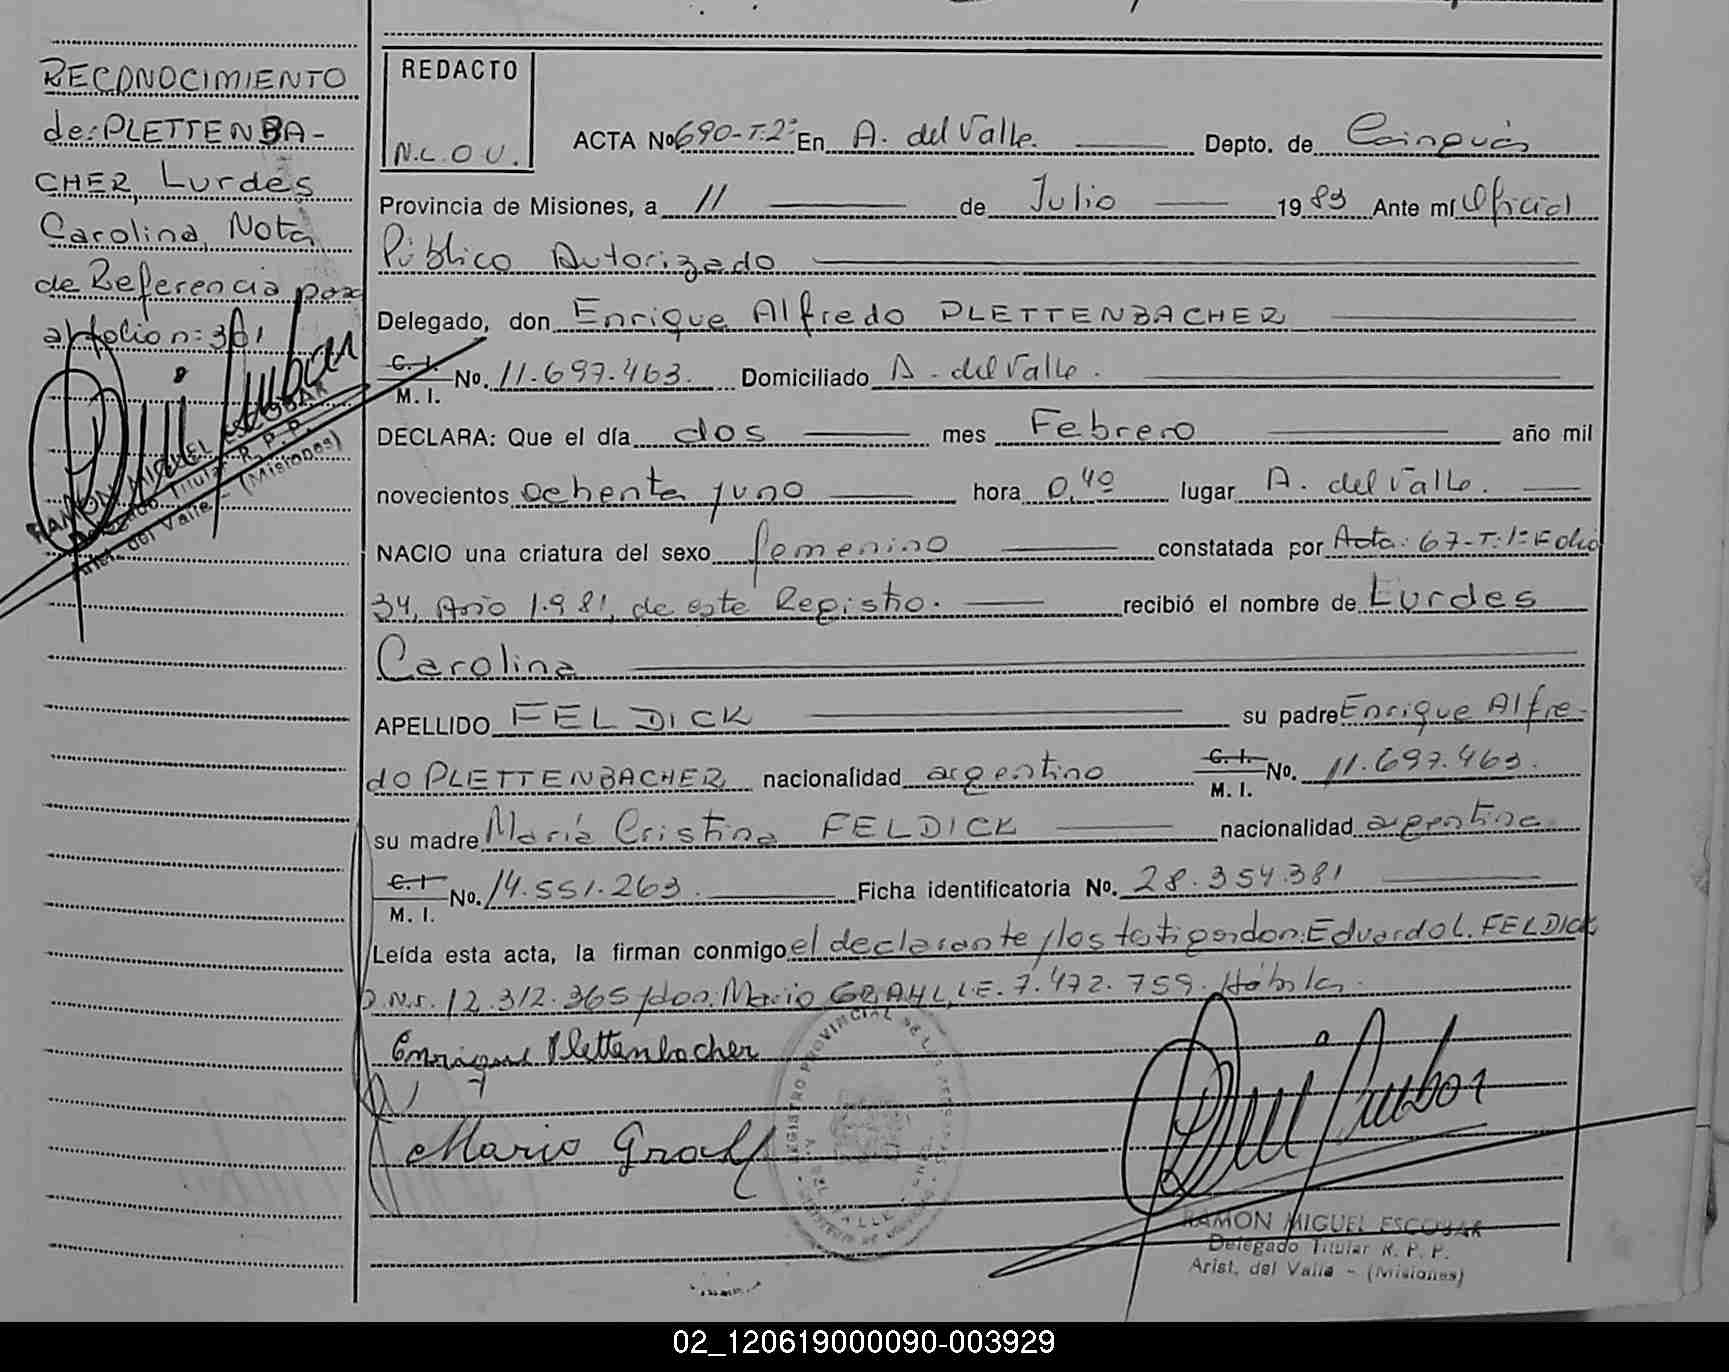 RECONOCIMIENTO
de: PLETTENBA-
CHER, Lurdes
Carolina, Nota
de Referencia pasa
al folio n: 361
RAMON MIGUEL ESCOBAR
Delegado Titular R. P. P.
Arist. del Valle - (Misiones)
REDACTO
N.L.O.U.
ACTA No 690-T.2º En A. del Valle. Depto. de Cainguás
Provincia de Misiones, a 11 de Julio 1983 Ante mí Oficial
Público Autorizado
Delegado, don Enrique Alfredo PLETTENBACHER
C. I.
M. I. No. 11.697.463. Domiciliado A. del Valle.
DECLARA: Que el día dos mes Febrero año mil
novecientos ochenta y uno hora 0,40 lugar A. del Valle.
NACIO una criatura del sexo femenino constatada por Acta: 67-T.1º Folio
34, Año 1.981, de este Registro. recibió el nombre de Lurdes
Carolina
APELLIDO FELDICK su padre Enrique Alfre-
do PLETTENBACHER nacionalidad argentino C. I.
M. I. No. 11.697.463.
su madre María Cristina FELDICK nacionalidad argentina
C. I
M. I. No. 14.551.263. Ficha identificatoria No. 28.354.381
Leída esta acta, la firman conmigo el declarante y los testigos don: Eduardo L. FELDICK
D.N.I. 12.312.365 y don: Mario GRAHL, L.E. 7.472.759. Hábiles.
Enrique Plettenbacher
Mario Grahl
REGISTRO PROVINCIAL DE LAS PERSONAS
VALLE
RAMON MIGUEL ESCOBAR
Delegado Titular R. P. P.
Arist. del Valle - (Misiones)
02_120619000090-003929